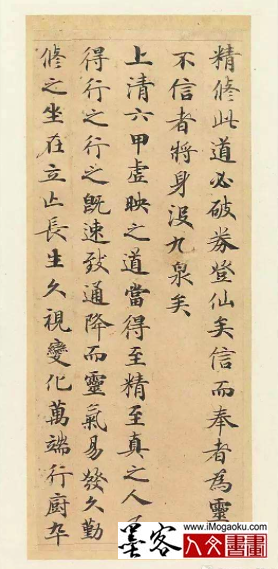 精修此道必破券登仙矣信而奉者為靈
不信者將身沒九泉矣
上清六甲虛映之道當得至精至真之人
得行之行之既速致通降而靈氣易發久勤
修之坐在立亡長生久視變化萬端行廚卒
墨客
www.iMogaoku.com
人文書畫